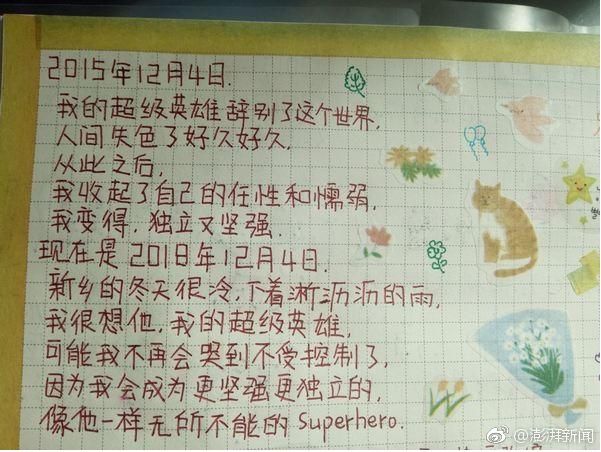 2015年12月4日.
我的超级英雄辞别了这个世界,
人间失色了好久好久.
从此之后,
我收起了自己的任性和懦弱,
我变得,独立又坚强.
现在是2018年12月4日.
新乡的冬天很冷,下着淅沥沥的雨,
我很想他,我的超级英雄,
可能我不再会哭到不受控制了,
因为我会成为更坚强更独立的,
像他一样无所不能的 Superhero.
@澎湃新闻